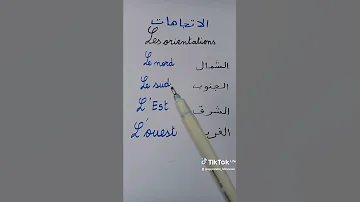 الاتجاهات
Les orientations
Le nord الشمال
Le sud الجنوب
L'Est الشرق
L'ouest الغرب
TikTok